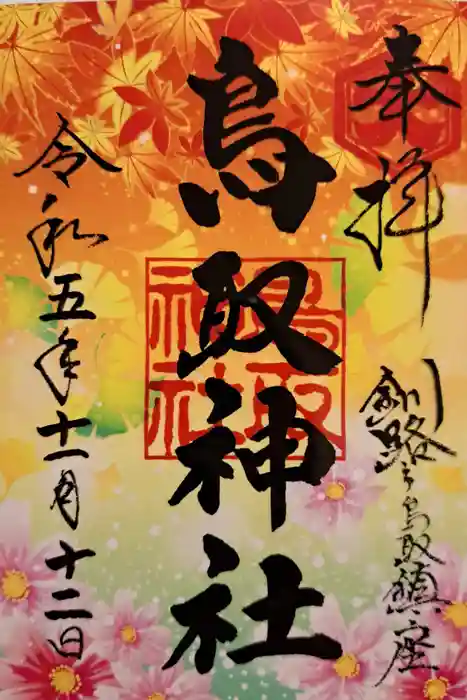 奉拝
釧路之鳥取鎮座
鳥取神社
鳥取神社
令和五年十一月十二日